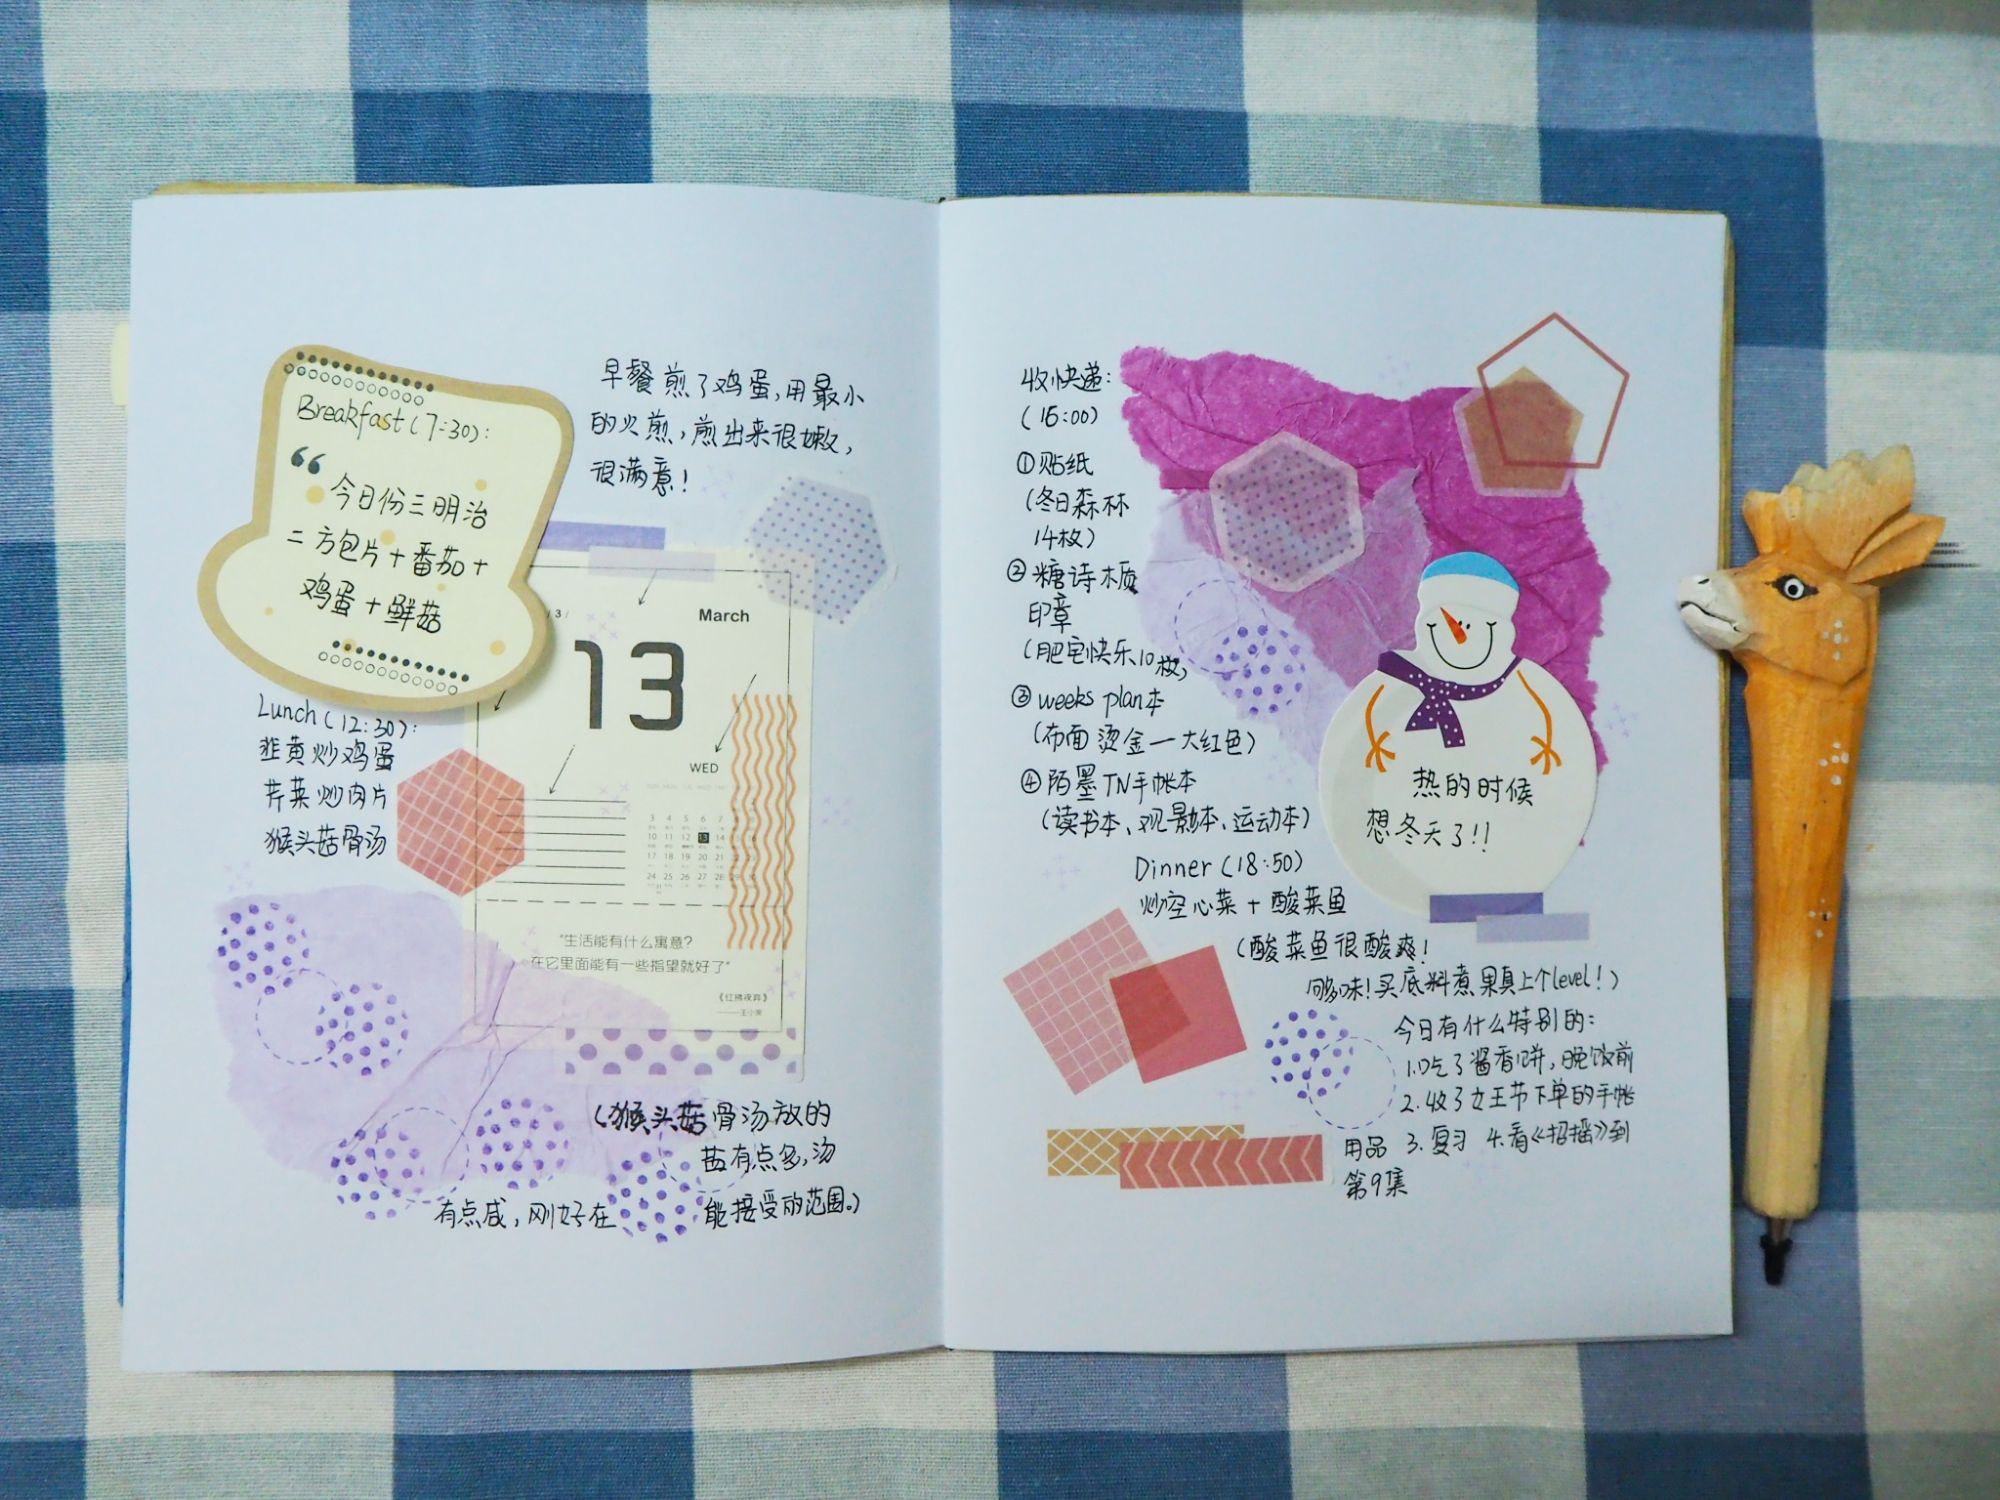 Breakfast(7:30):
“
今日份三明治
=方包片+番茄+
鸡蛋+鲜菇
早餐煎了鸡蛋,用最小
的火煎,煎出来很嫩,
很满意!
/3/
March
13
WED
3 4 5 6 7
10 11 12 13 14 15 16
17 18 19 20 21 22 23
24 25 26 27 28 29 30
31
“生活能有什么寓意?
在它里面能有一些指望就好了”
《红拂夜奔》
——王小波
Lunch(12:30):
韭黄炒鸡蛋
芹菜炒肉片
猴头菇骨汤
(猴头菇骨汤放的
盐有点多,汤
有点咸,刚好在能接受的范围。)
收快递:
(16:00)
①贴纸
(冬日森林
14枚)
②糖诗木质
印章
(肥宅快乐10枚)
③weeks plan本
(布面烫金—大红色)
④陌墨TN手帐本
(读书本、观影本、运动本)
热的时候
想冬天了!!
Dinner(18:50)
炒空心菜+酸菜鱼
(酸菜鱼很酸爽!
够味!买底料煮果真上个level!)
今日有什么特别的:
1.吃了酱香饼,晚饭前
2.收了女王节下单的手帐
用品 3.复习 4.看《招摇》到
第9集